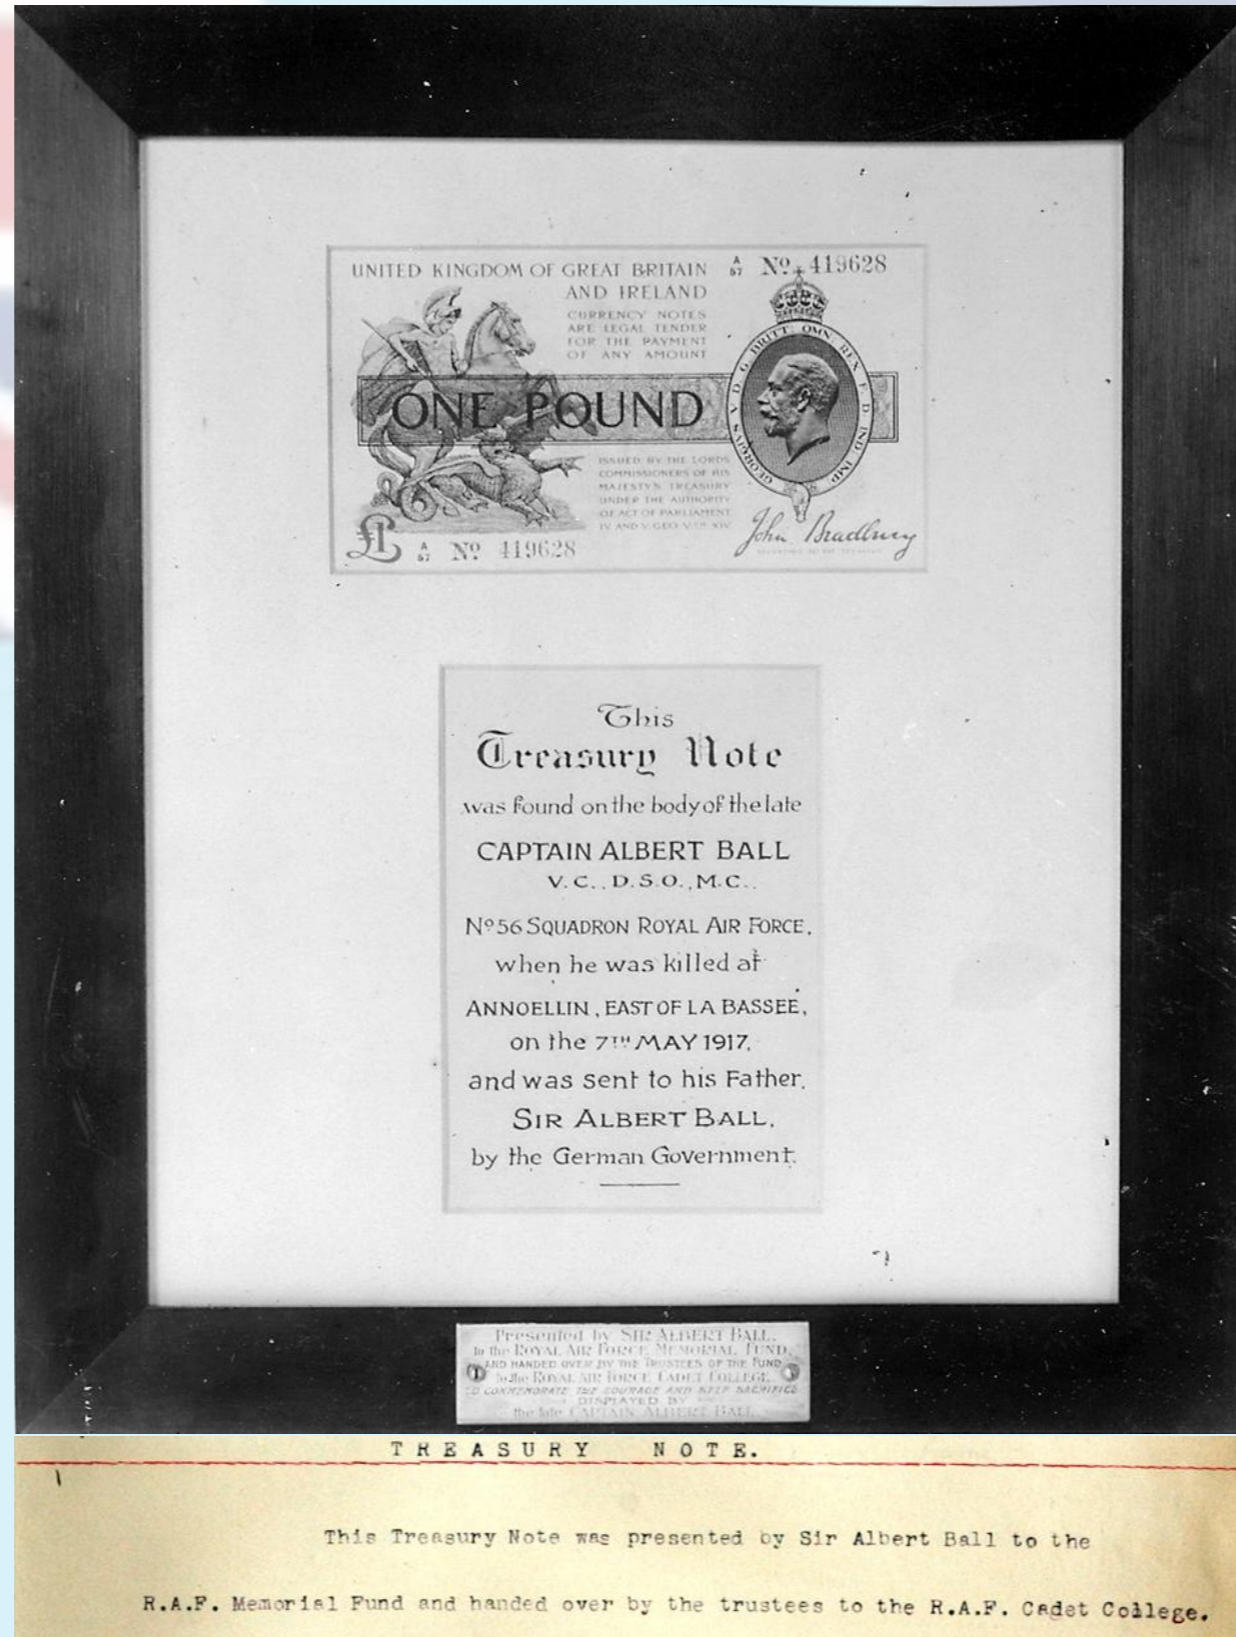 UNITED KINGDOM OF GREAT BRITAIN
AND IRELAND
A
57 No 419628
CURRENCY NOTES
ARE LEGAL TENDER
FOR THE PAYMENT
OF ANY AMOUNT
ONE POUND
GEORGIVS V D. G. BRITT: OMN: REX F. D. IND: IMP:
ISSUED BY THE LORDS
COMMISSIONERS OF HIS
MAJESTY'S TREASURY
UNDER THE AUTHORITY
OF ACT OF PARLIAMENT
IV AND V GEO. V CH. XIV
£1 A
57 No 419628
John Bradbury
This
Treasury Note
was found on the body of the late
CAPTAIN ALBERT BALL
V.C., D.S.O., M.C.,
No 56 SQUADRON ROYAL AIR FORCE,
when he was killed at
ANNOELLIN, EAST OF LA BASSEÉ,
on the 7TH MAY 1917,
and was sent to his Father,
SIR ALBERT BALL,
by the German Government.
Presented by SIR ALBERT BALL,
to the ROYAL AIR FORCE MEMORIAL FUND,
AND HANDED OVER BY THE TRUSTEES OF THE FUND
to the ROYAL AIR FORCE CADET COLLEGE,
TO COMMEMORATE THE COURAGE AND SELF SACRIFICE
DISPLAYED BY
the late CAPTAIN ALBERT BALL
TREASURY NOTE.
This Treasury Note was presented by Sir Albert Ball to the
R.A.F. Memorial Fund and handed over by the trustees to the R.A.F. Cadet College.